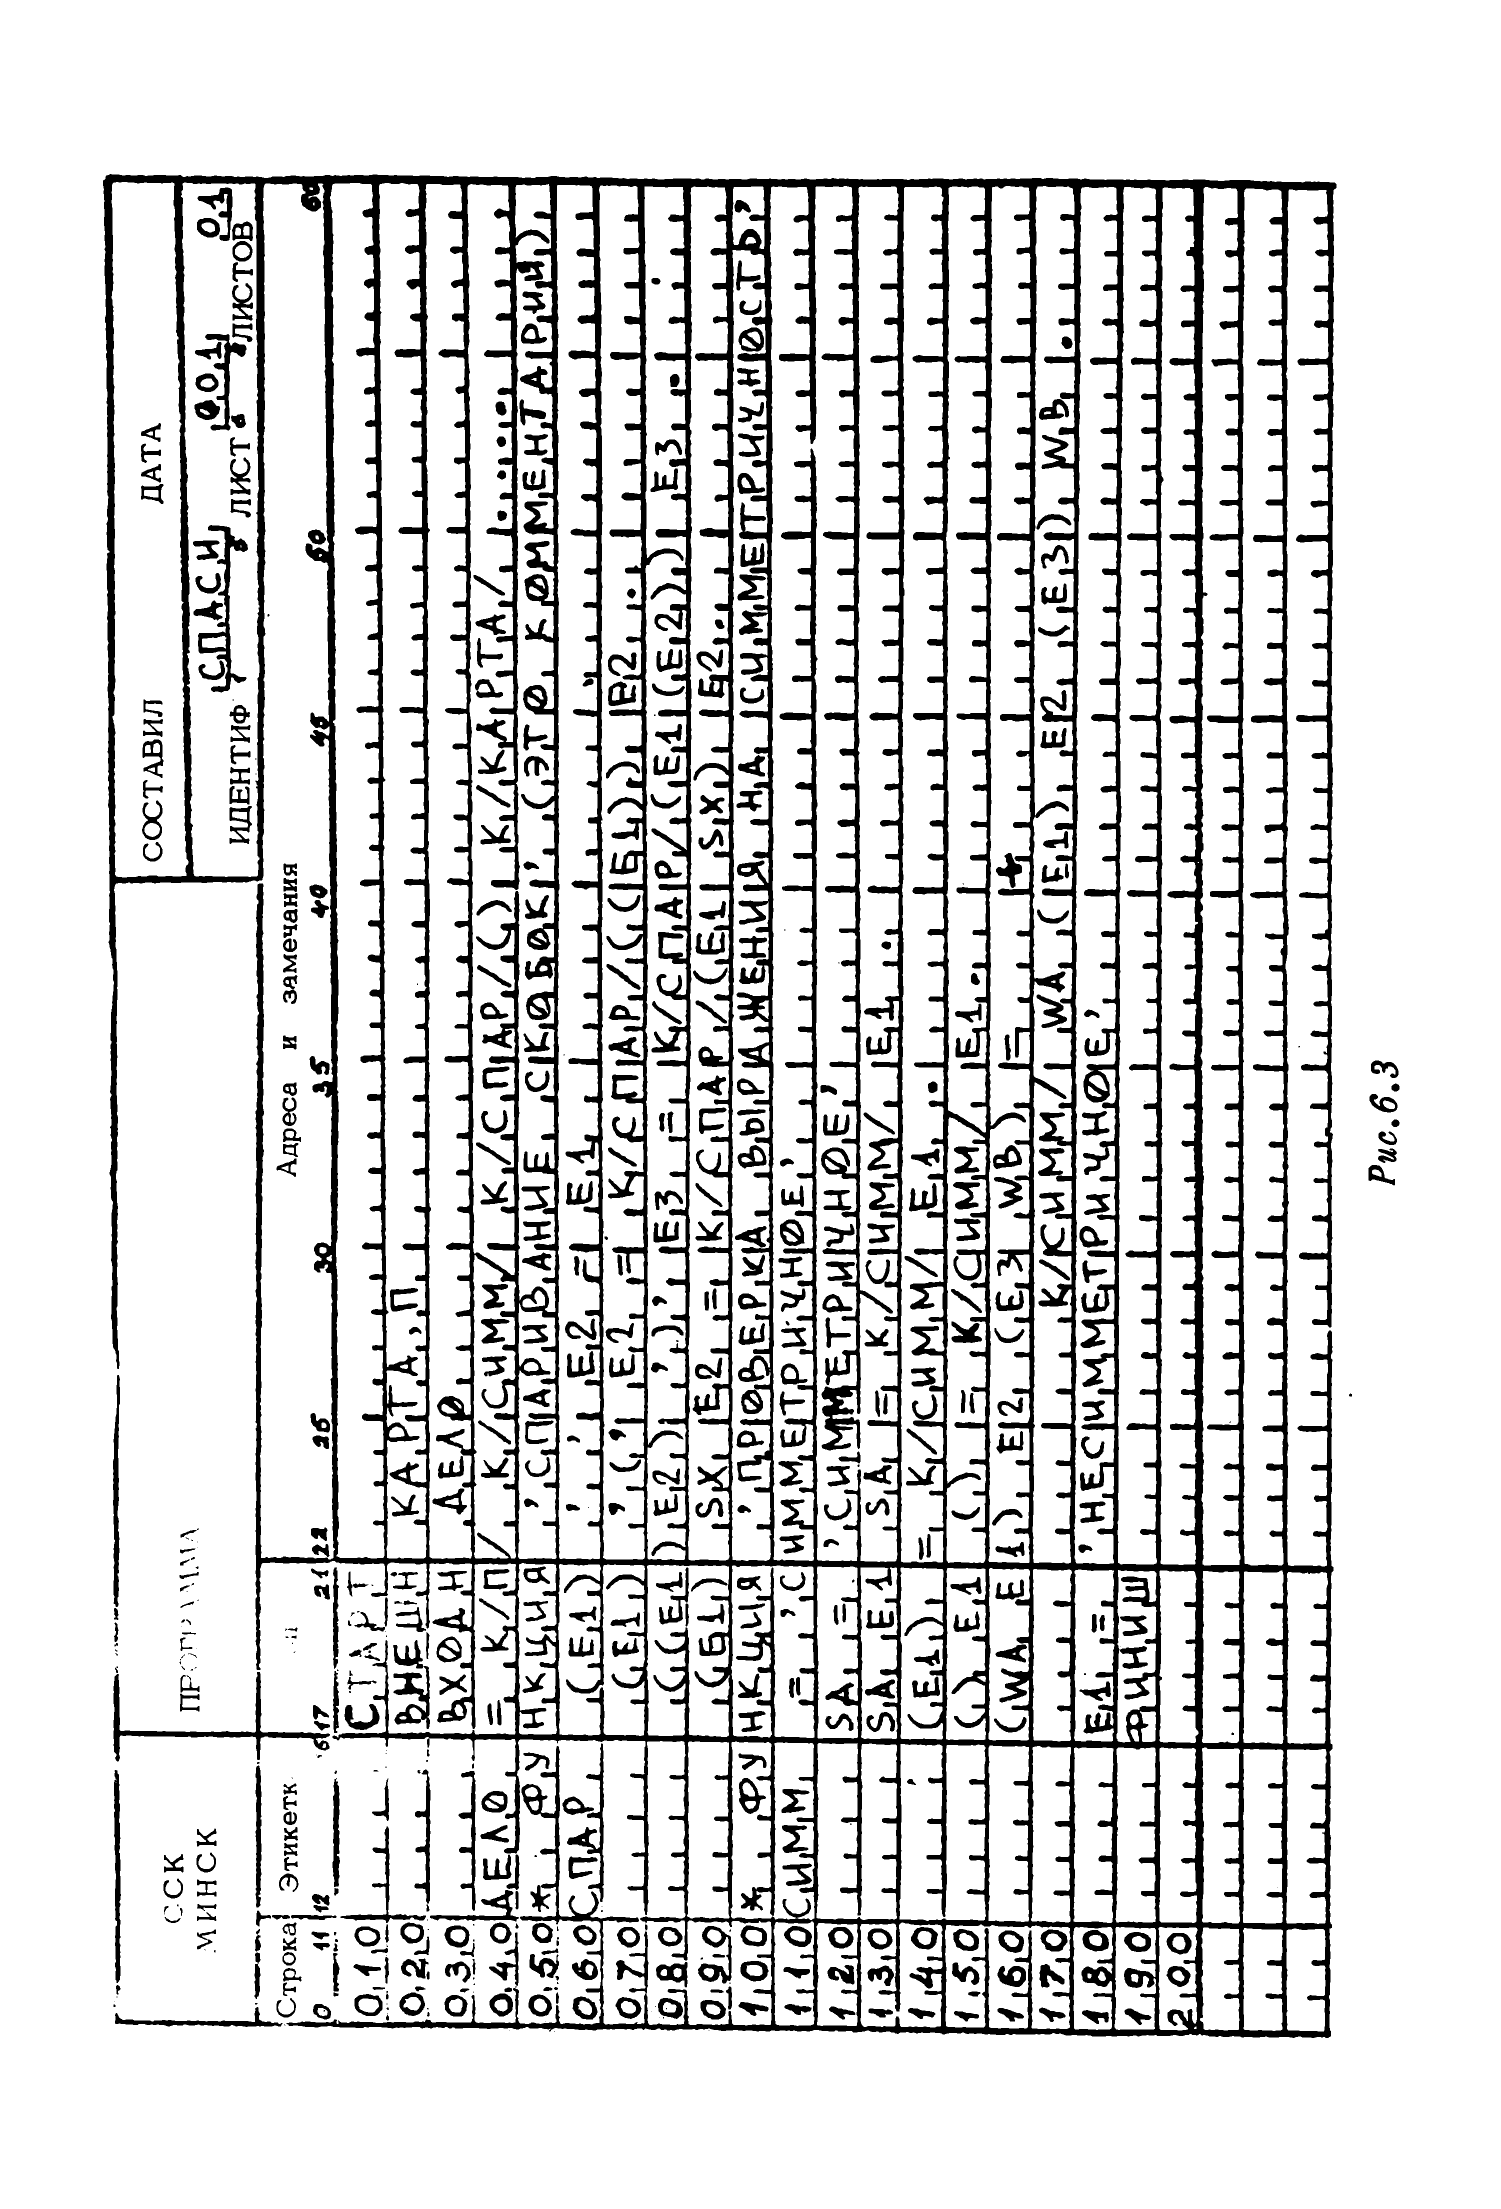 ССК МИНСК
ПРОГРАММА
СОСТАВИЛ ДАТА
ИДЕНТИФ СПАСИ ЛИСТ 001 ЛИСТОВ 01
Строка Этикетк Адреса и замечания
0 11 12 6 17 21 22 25 30 35 40 45 50 60
010 СТАРТ
020 ВНЕШН КАРТА,П
030 ВХОДН ДЕЛО
040 ДЕЛО = К/П/ К/СИММ/ К/СПАР/() К/КАРТА/ ....
050 * ФУНКЦИЯ 'СПАРИВАНИЕ СКОБОК' (ЭТО КОММЕНТАРИЙ)
060 СПАР (E1) '' E2 = E1 ..
070 (E1) '(' E2 = К/СПАР/((E1)) E2 ..
080 ((E1) E2) ')' E3 = К/СПАР/(E1(E2)) E3 ..
090 (E1) SX E2 = К/СПАР/(E1 SX) E2 ..
100 * ФУНКЦИЯ 'ПРОВЕРКА ВЫРАЖЕНИЯ НА СИММЕТРИЧНОСТЬ'
110 СИММ = 'СИММЕТРИЧНОЕ'
120 SA = 'СИММЕТРИЧНОЕ'
130 SA E1 SA = К/СИММ/ E1 ..
140 (E1) = К/СИММ/ E1 ..
150 () E1 () = К/СИММ/ E1 ..
160 (WA E1) E2 (E3 WB) = +
170 К/СИММ/ WA (E1) E2 (E3) WB .
180 E1 = 'НЕСИММЕТРИЧНОЕ'
190 ФИНИШ
200
Рис.6.3